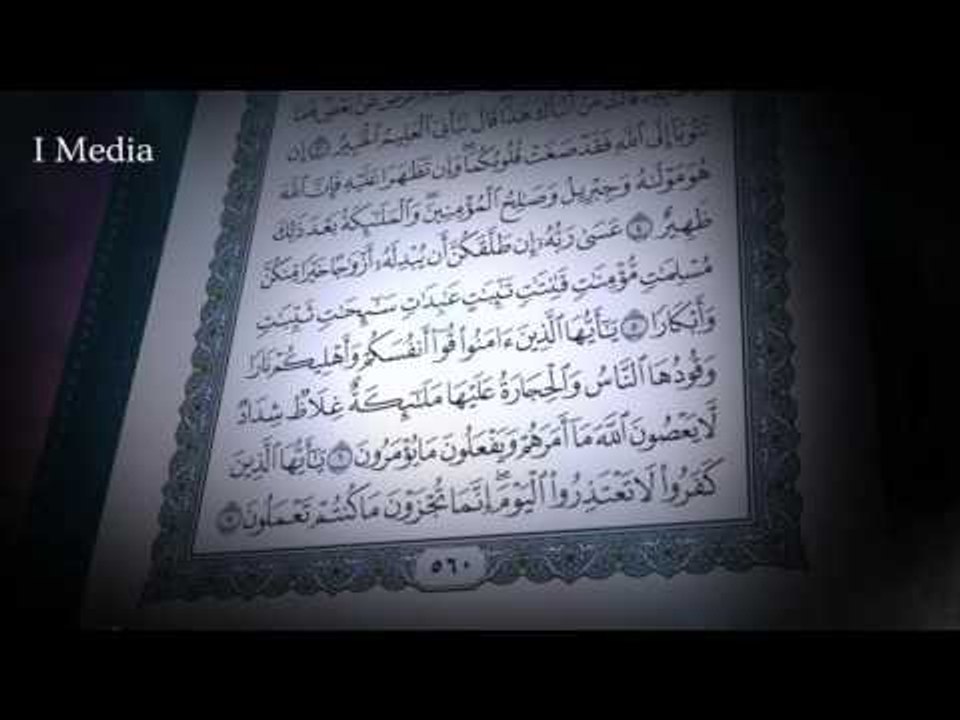 I Media
قَالَتْ مَنْ أَنۢبَأَكَ هَٰذَا ۖ قَالَ نَبَّأَنِىَ ٱلْعَلِيمُ ٱلْخَبِيرُ ٣ إِن
تَتُوبَآ إِلَى ٱللَّهِ فَقَدْ صَغَتْ قُلُوبُكُمَا ۖ وَإِن تَظَٰهَرَا عَلَيْهِ فَإِنَّ ٱللَّهَ
هُوَ مَوْلَىٰهُ وَجِبْرِيلُ وَصَٰلِحُ ٱلْمُؤْمِنِينَ ۖ وَٱلْمَلَٰٓئِكَةُ بَعْدَ ذَٰلِكَ
ظَهِيرٌ ٤ عَسَىٰ رَبُّهُۥٓ إِن طَلَّقَكُنَّ أَن يُبْدِلَهُۥٓ أَزْوَٰجًا خَيْرًا مِّنكُنَّ
مُسْلِمَٰتٍ مُّؤْمِنَٰتٍ قَٰنِتَٰتٍ تَٰٓئِبَٰتٍ عَٰبِدَٰتٍ سَٰٓئِحَٰتٍ ثَيِّبَٰتٍ
وَأَبْكَارًا ٥ يَٰٓأَيُّهَا ٱلَّذِينَ ءَامَنُوا۟ قُوٓا۟ أَنفُسَكُمْ وَأَهْلِيكُمْ نَارًا
وَقُودُهَا ٱلنَّاسُ وَٱلْحِجَارَةُ عَلَيْهَا مَلَٰٓئِكَةٌ غِلَاظٌ شِدَادٌ
لَّا يَعْصُونَ ٱللَّهَ مَآ أَمَرَهُمْ وَيَفْعَلُونَ مَا يُؤْمَرُونَ ٦ يَٰٓأَيُّهَا ٱلَّذِينَ
كَفَرُوا۟ لَا تَعْتَذِرُوا۟ ٱلْيَوْمَ ۖ إِنَّمَا تُجْزَوْنَ مَا كُنتُمْ تَعْمَلُونَ ٧
٥٦٠